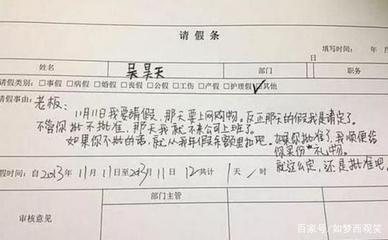 请假条
填写时间： 年
姓名 吴昊天 部门 职务
请假类别：□事假 □病假 □婚假 □丧假 □公假 □工伤 □产假 □护理假 ☑其他
请假事由：
老板：
11月11日我要请假，那天要上网购物。反正那天的假我是请定了。
不管你批不批准，那天我就不来公司上班了。
如果你不批的话，就从我年假余额里扣吧。如果你批准了，我顺便给
你买份*礼物。
就这么定，还是批准吧。
假时间：自2013年11月11日至2013年11月12共计1天 时
审核意见
部门主管
百家号/如梦西观笑